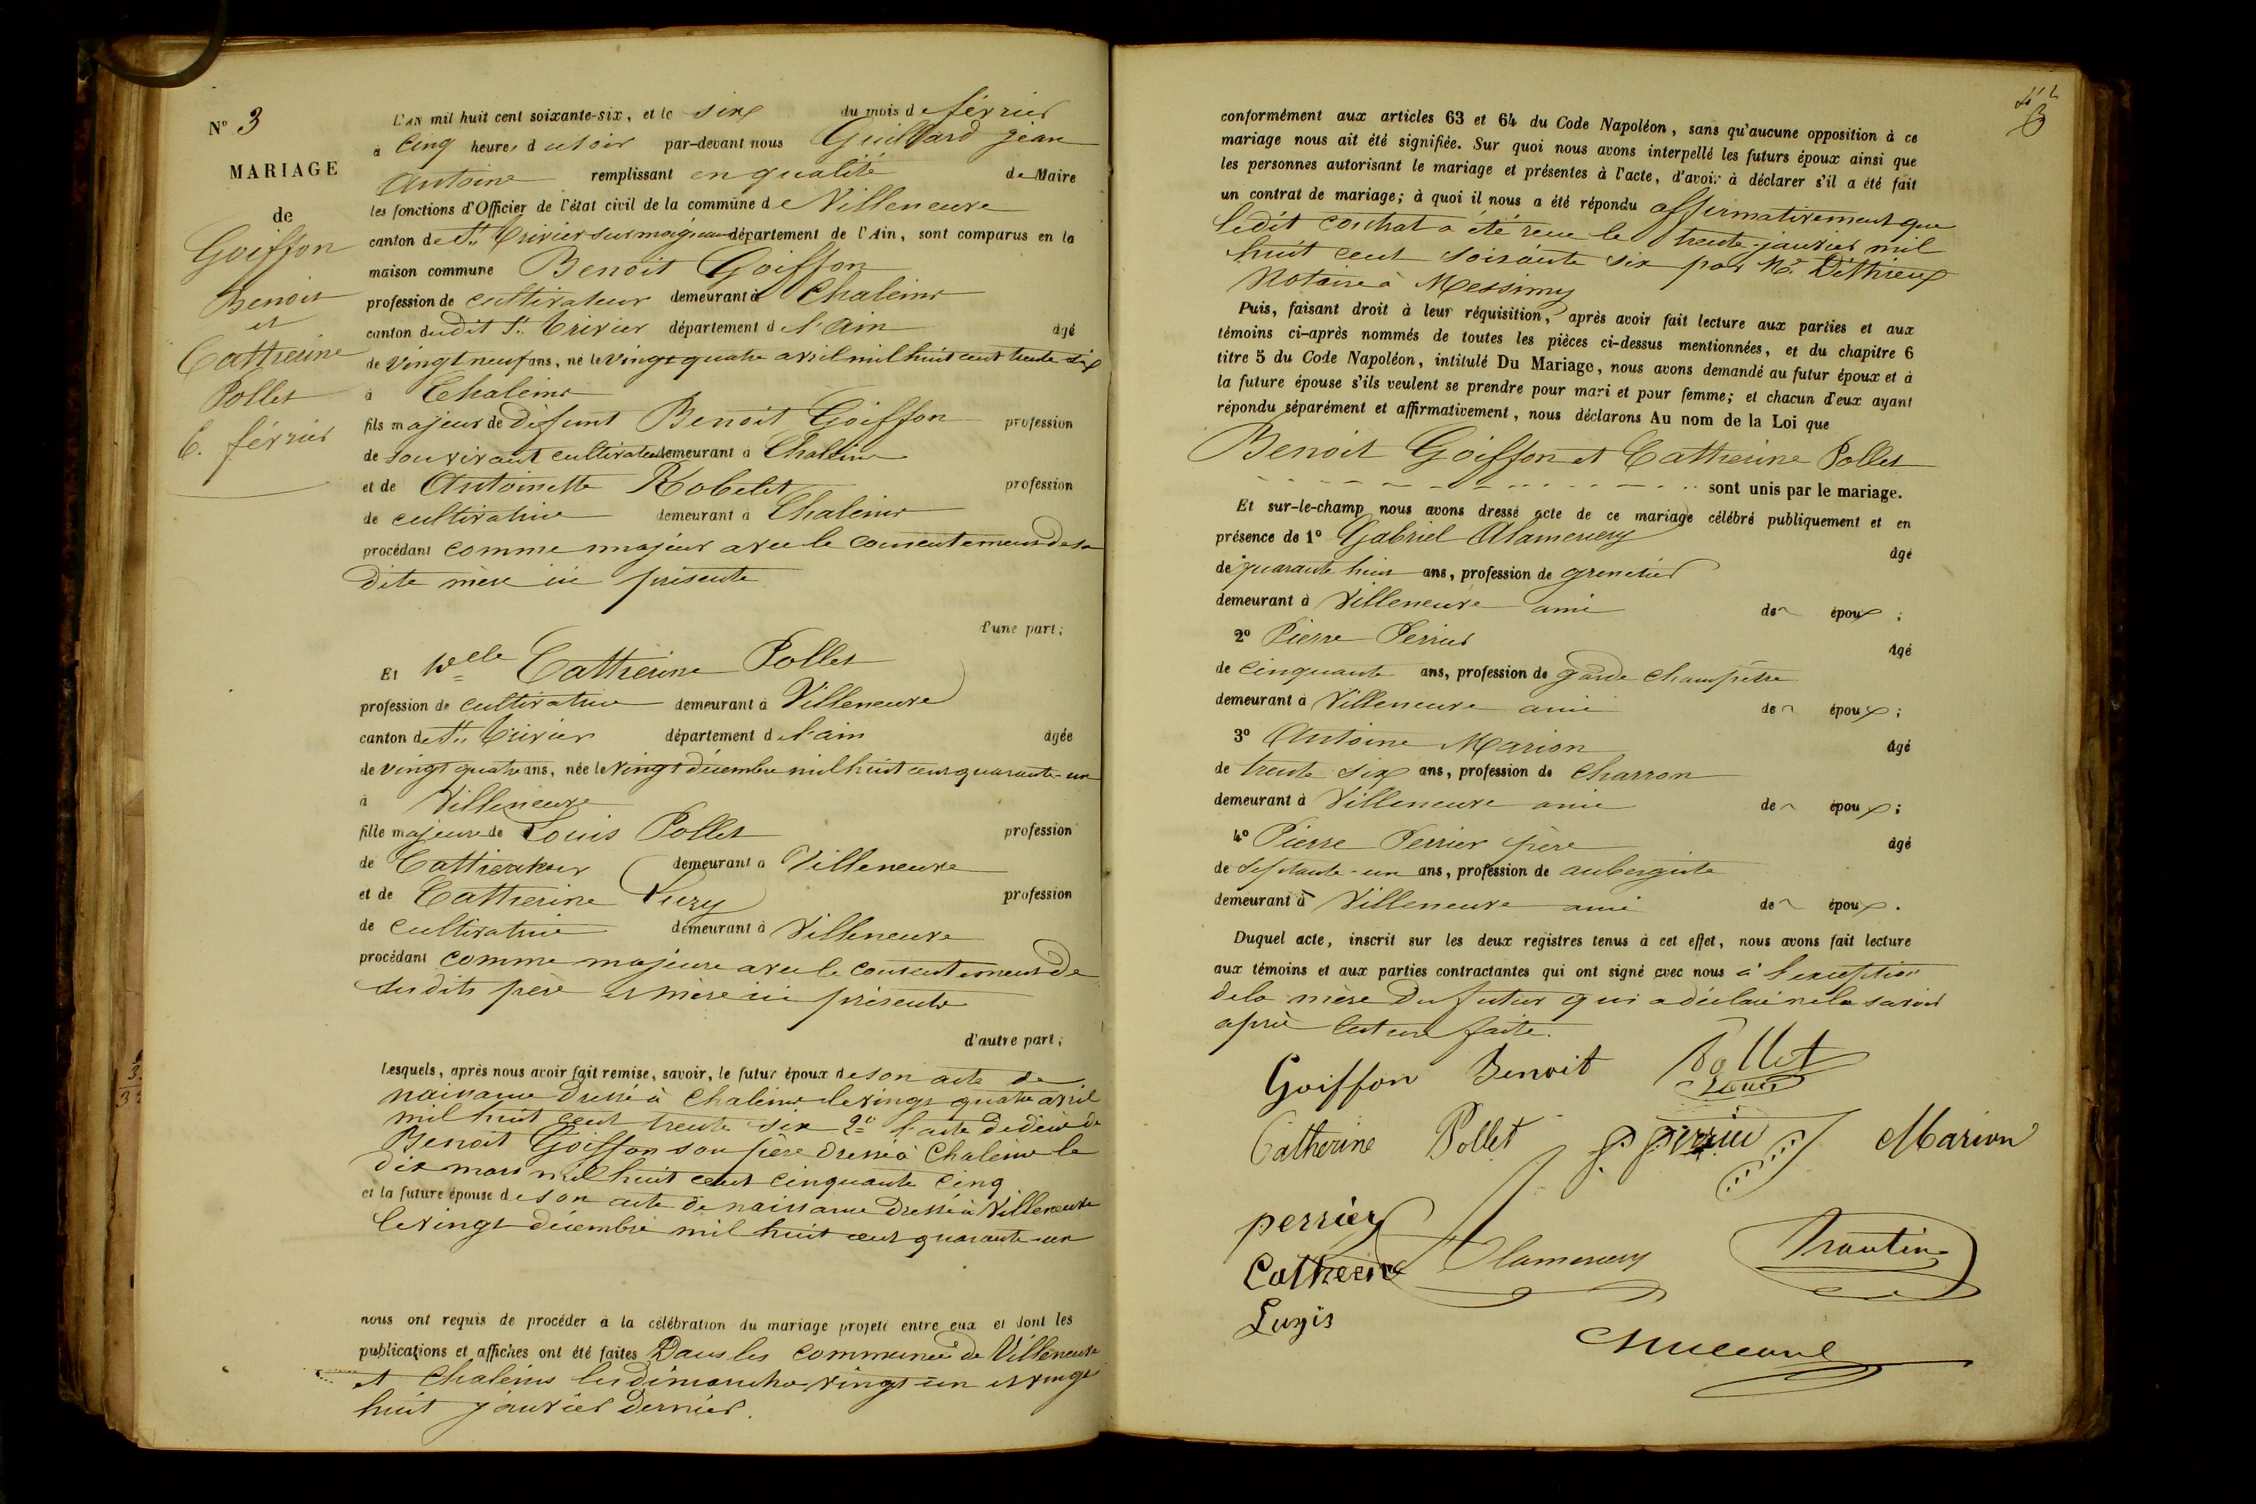 N° 3
MARIAGE
de
Goiffon
Benoit
et
Catherine
Pollet
6. février
L'AN mil huit cent soixante-six, et le six du mois de février
à cinq heures du soir par-devant nous Guillard jean
Antoine remplissant en qualité de Maire
les fonctions d'Officier de l'état civil de la commune de Villeneuve
canton de St. Trivier sur moignans département de l'Ain, sont comparus en la
maison commune Benoit Goiffon
profession de cultivateur demeurant à Chaleins
canton dudit St. Trivier département de l'ain âgé
de vingt neuf ans, né le vingt quatre avril mil huit cent trente six
à Chaleins
fils majeur de défunt Benoit Goiffon profession
de son vivant cultivateur demeurant à Chaleins
et de Antoinette Robelet profession
de cultivatrice demeurant à Chaleins
procédant comme majeur avec le consentement de sa
dite mère ici présente
d'une part;
Et Delle Catherine Pollet
profession de cultivatrice demeurant à Villeneuve
canton de St. Trivier département de l'ain âgée
de vingt quatre ans, née le vingt décembre mil huit cent quarante-un
à Villeneuve
fille majeure de Louis Pollet profession
de cultivateur demeurant à Villeneuve
et de Catherine profession
de cultivatrice demeurant à Villeneuve
procédant comme majeure avec le consentement de
ses dits père et mère ici présents
d'autre part;
Lesquels, après nous avoir fait remise, savoir, le futur époux de son acte de
naissance dressé à Chaleins le vingt quatre avril
mil huit cent trente six 2° l'acte de décès de
Benoit Goiffon son père dressé à Chaleins le
dix mars mil huit cent cinquante cinq
et la future épouse de son acte de naissance dressé à Villeneuve
le vingt décembre mil huit cent quarante-un
nous ont requis de procéder à la célébration du mariage projeté entre eux et dont les
publications et affiches ont été faites Dans les communes de Villeneuve
et Chaleins les dimanches vingt-un et vingt
huit janvier dernier.
conformément aux articles 63 et 64 du Code Napoléon, sans qu'aucune opposition à ce
mariage nous ait été signifiée. Sur quoi nous avons interpellé les futurs époux ainsi que
les personnes autorisant le mariage et présentes à l'acte, d'avoir à déclarer s'il a été fait
un contrat de mariage; à quoi il nous a été répondu affirmativement que
ledit contrat a été reçu le trente janvier mil
huit cent soixante six par Me Dethieux
Notaire à Messimy
Puis, faisant droit à leur réquisition, après avoir fait lecture aux parties et aux
témoins ci-après nommés de toutes les pièces ci-dessus mentionnées, et du chapitre 6
titre 5 du Code Napoléon, intitulé Du Mariage, nous avons demandé au futur époux et à
la future épouse s'ils veulent se prendre pour mari et pour femme; et chacun d'eux ayant
répondu séparément et affirmativement, nous déclarons Au nom de la Loi que
Benoit Goiffon et Catherine Pollet
sont unis par le mariage.
Et sur-le-champ nous avons dressé acte de ce mariage célébré publiquement et en
présence de 1° Gabriel Alamercery âgé
de quarante huit ans, profession de grenetier
demeurant à Villeneuve ami des époux;
2° Pierre Perrier âgé
de cinquante ans, profession de garde champêtre
demeurant à Villeneuve ami des époux;
3° Antoine Marion âgé
de trente six ans, profession de charron
demeurant à Villeneuve ami des époux;
4° Pierre Perrier père âgé
de septante-un ans, profession de aubergiste
demeurant à Villeneuve ami des époux.
Duquel acte, inscrit sur les deux registres tenus à cet effet, nous avons fait lecture
aux témoins et aux parties contractantes qui ont signé avec nous à l'exception
de la mère du futur qui a déclaré ne le savoir
après lecture faite.
Goiffon Benoit Pollet
Louis
Catherine Pollet p perrier Marion
perrier
Catherine Alamercery Trantin